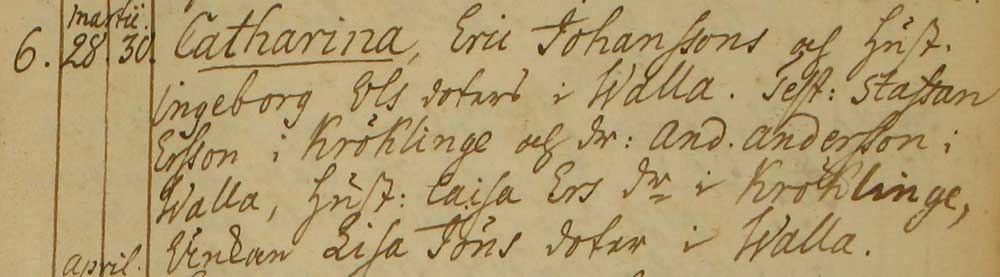 Martii.
6. 28. 30. Catharina, Eric Johanssons och Hust.
Ingeborg Ols doters i Walla. Test: Staffan
Ersson i Kröklinge och Dr: And. Andersson i
Walla, Hust: Caisa Ers Dr i Kröklinge,
Enkan Lisa Jöns doter i Walla.
April.